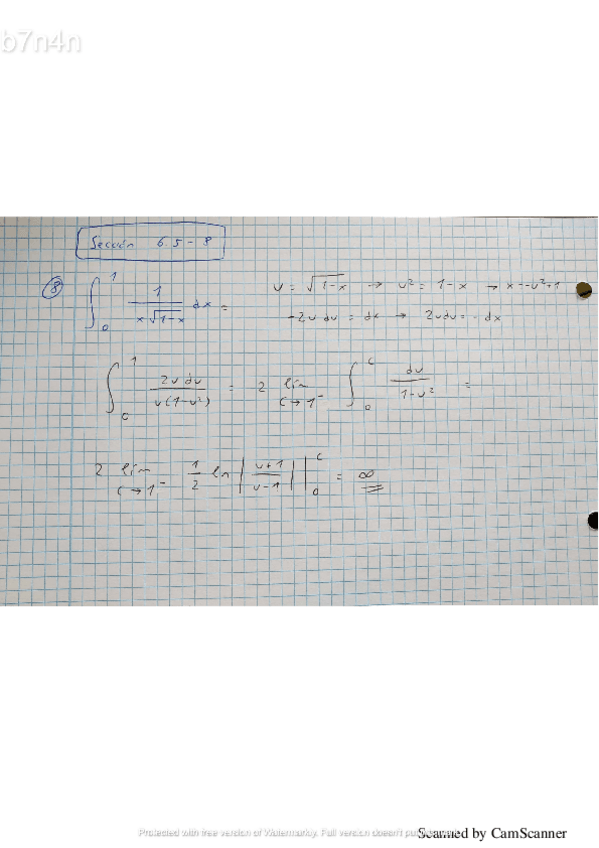 b7n4n
Sección 6.5-8
⑧ ∫₀¹ 1/(x√(1-x)) dx = v = √(1-x) → v² = 1-x → x=-v²+1
-2v dv = dx → 2v dv = -dx
∫₀¹ 2v dv/(v(1-v²)) = 2 lim c→1⁻ ∫₀ᶜ dv/(1-v²) =
2 lim c→1⁻ 1/2 ln |(v+1)/(v-1)| |₀ᶜ = ∞
Protected with free version of Watermarkly. Full version doesn't put
Scanned by CamScanner